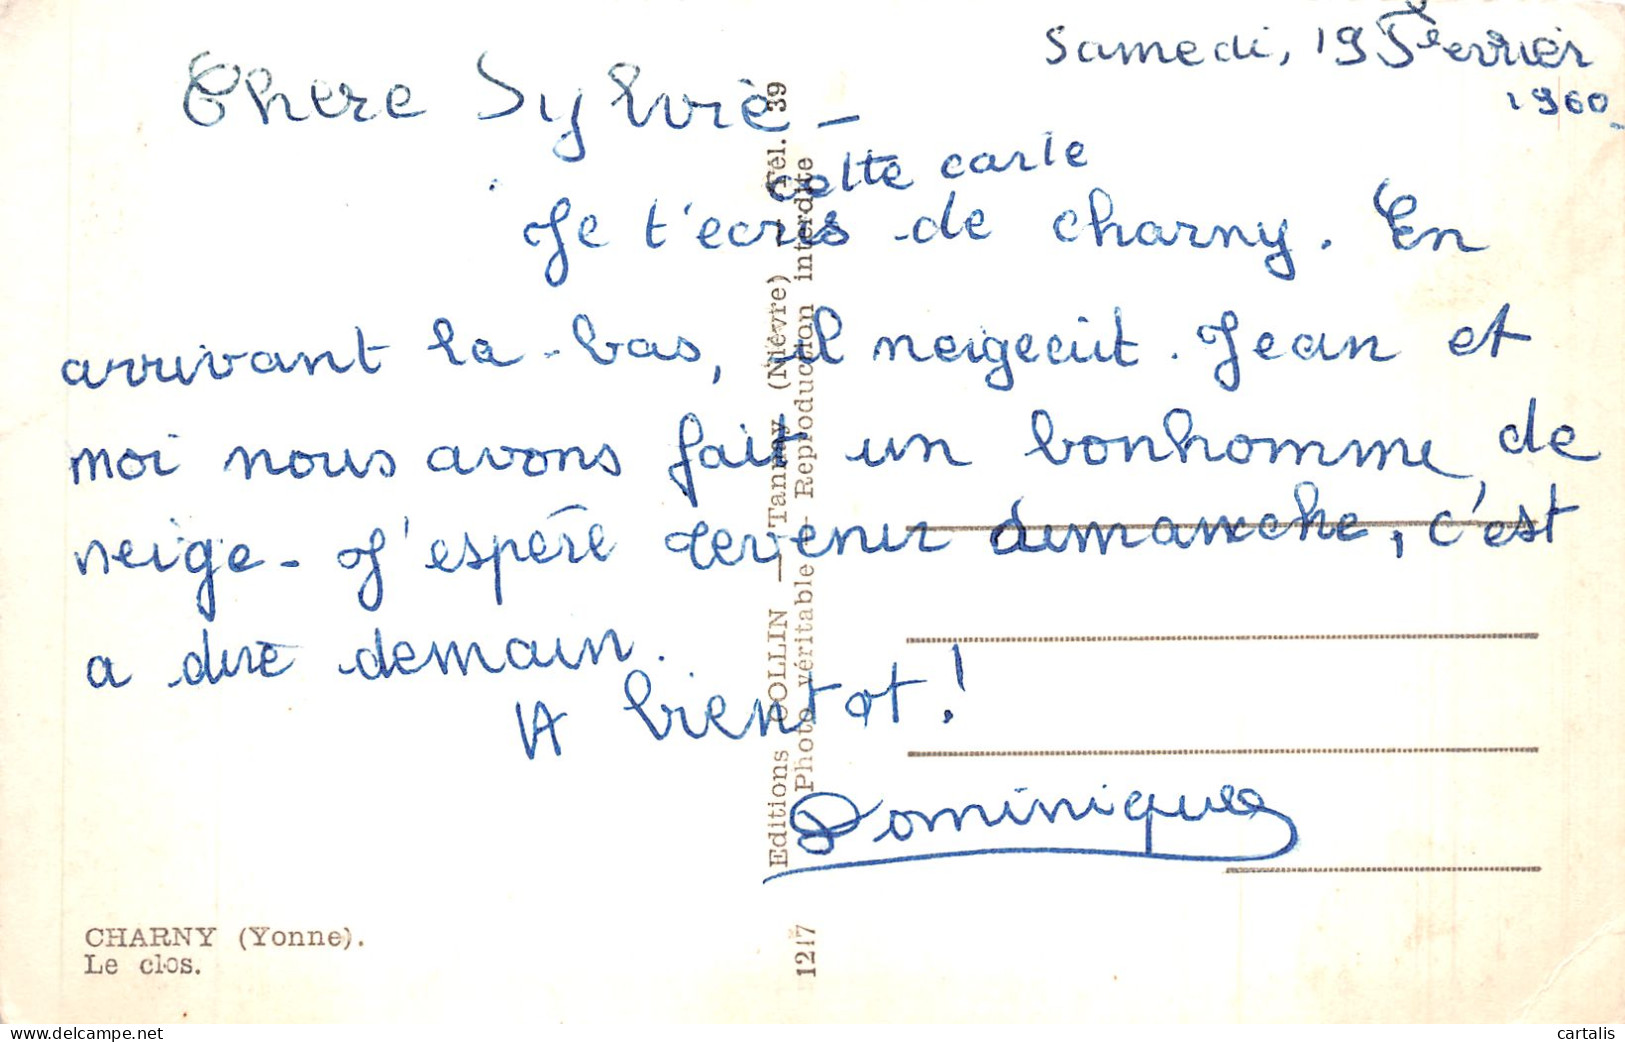 Samedi, 19 Février
1960_
Chere Sylvie _
cette carte
Je t'ecris de charny. En
arrivant la-bas, il neigeait. Jean et
moi nous avons fait un bonhomme de
neige_ J'espère revenir dimanche, c'est
a dire demain.
A bientot!
Dominique
CHARNY (Yonne).
Le clos.
Editions COLLIN — Tannay (Nièvre) — Tél. 39
Photo véritable - Reproduction interdite
1217
cartalis